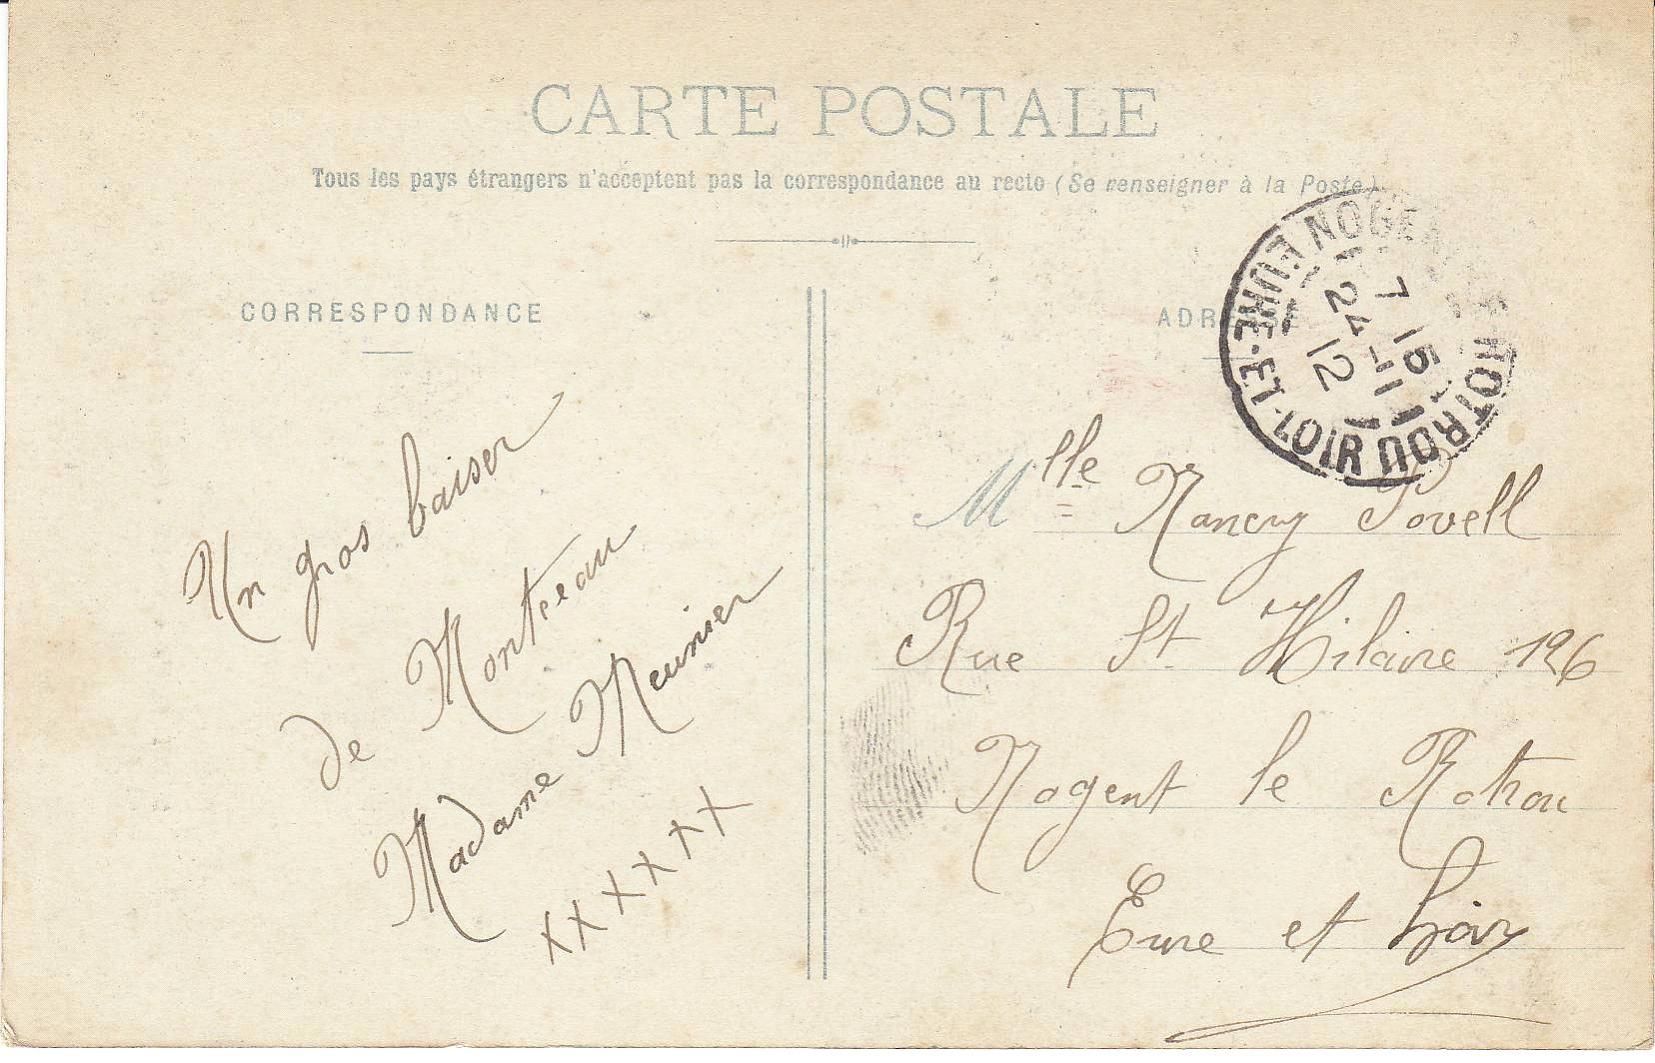 CARTE POSTALE
Tous les pays étrangers n'acceptent pas la correspondance au recto (Se renseigner à la Poste)
CORRESPONDANCE
Un gros baiser
de Montceau
Madame Meunier
x x x x x x
ADRESSE
NOGENT-LE-ROTROU
EURE-ET-LOIR
7 15
24-11
12
Mlle Nancy Povell
Rue St Hilaire 126
Nogent le Rotrou
Eure et Loir